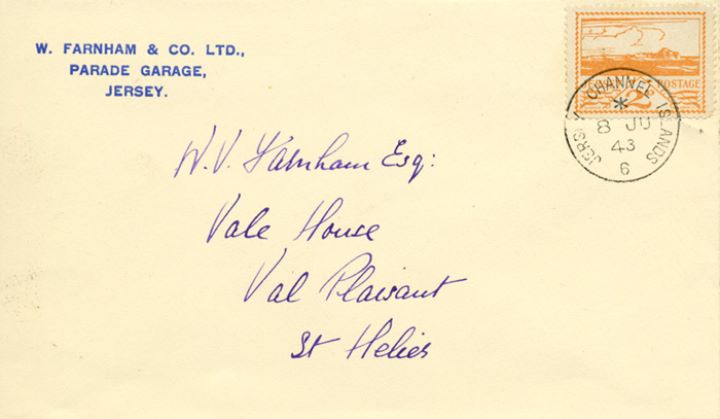 W. FARNHAM & CO. LTD.,
PARADE GARAGE,
JERSEY.
POSTAGE
2
JERSEY CHANNEL ISLANDS
*
8 JU
43
6
W. V. Farnham Esq:
Vale House
Val Plaisant
St Helier